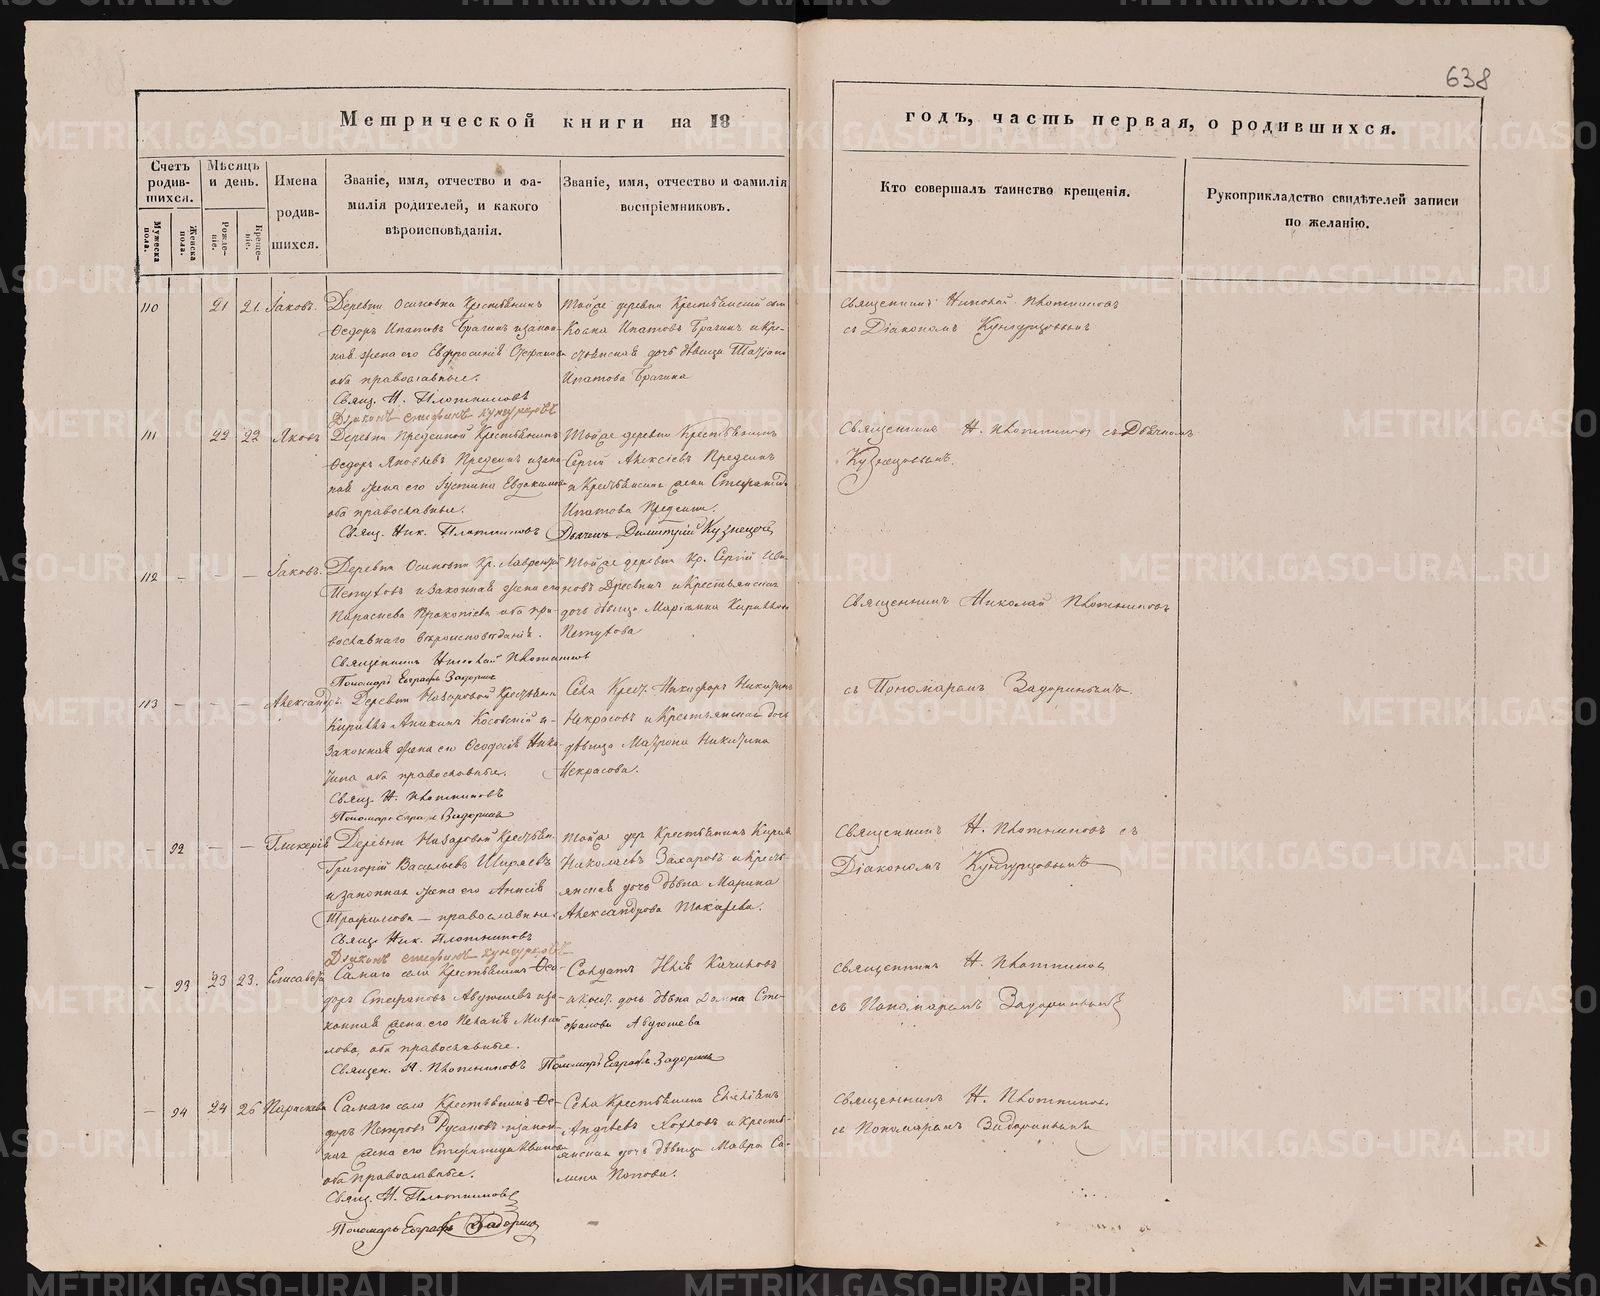 638
Метрической книги на 18
годъ, часть первая, о родившихся.
Счетъ родив-шихся.
Мѣсяцъ и день.
Имена родив-шихся.
Званіе, имя, отчество и фа-
милія родителей, и какого
вѣроисповѣданія.
Званіе, имя, отчество и фамилія
воспріемниковъ.
Кто совершалъ таинство крещенія.
Рукоприкладство свидѣтелей записи
по желанію.
Мужеска пола.
Женска пола.
Рожде-ніе.
Креще-ніе.
110 21 21. Іаковъ.
Деревни Осиновки Крестьянинъ
Ѳедоръ Ипатовъ Брагинъ и закон-
ная жена его Евфросинія Стефанова
оба православные.
Свящ. Н. Плотниковъ
Діаконъ Стефанъ Кунгурцовъ
Тойже деревни Крестьянскій сынъ
Косма Ипатовъ Брагинъ и кре-
стьянская дочь дѣвица Татіана
Ипатова Брагина
Священникъ Николай Плотниковъ
съ Діакономъ Кунгурцовымъ
111 22 22 Яковъ
Деревни Предеиной Крестьянинъ
Ѳедоръ Яковлевъ Предеинъ и закон-
ная жена его Іустина Евдокимова
оба православные.
Свящ. Ник. Плотниковъ Дьячекъ Димитрій Кузнецовъ
Тойже деревни Крестьянинъ
Сергій Алексіевъ Предеинъ
и Крестьянская жена Стефанида
Ипатова Предеина.
Священникъ Н. Плотниковъ съ Дьячкомъ
Кузнецовымъ.
112 — — — Іаковъ.
Деревни Осиновки Кр. Лаврентій
Петуховъ и законная жена его
Параскева Прокопіева оба пра-
вославнаго вѣроисповѣданія.
Священникъ Николай Плотниковъ
Пономарь Евграфъ Задоринъ
Тойже деревни Кр. Сергій Ива-
новъ Древнихъ и Крестьянская
дочь дѣвица Маріанна Кирилова
Петухова
Священникъ Николай Плотниковъ
съ Пономаремъ Задоринымъ.
113 — — — Александръ.
Деревни Назаровой Крестьянинъ
Кириллъ Аникинъ Косовскій и
законная жена его Ѳеодосія Ники-
тина оба православные.
Свящ. Н. Плотниковъ
Пономарь Евграфъ Задоринъ
Села Крест. Никифоръ Никитинъ
Некрасовъ и Крестьянская дочь
дѣвица Матрона Никитина
Некрасова.
— 92 — — Гликерія
Деревни Назаровой Крестьян.
Григорій Васильевъ Ширяевъ
и законная жена его Анисія
Трофимова — православные.
Свящ. Ник. Плотниковъ
Діаконъ Стефанъ Кунгурцовъ
Тойже дер. Крестьянинъ Кирилъ
Николаевъ Захаровъ и Кресть-
янская дочь дѣвка Марина
Александрова Токарева.
Священникъ Н. Плотниковъ съ
Діакономъ Кунгурцовымъ
— 93 23 23. Елисавета
Самаго села Крестьянинъ Ѳео-
доръ Стефановъ Абугошевъ и за-
конная жена его Пелагія Михай-
лова, оба православные.
Священ. Н. Плотниковъ Пономарь Евграфъ Задоринъ
Солдатъ Илія Качиновъ
и Крест. дочь дѣвка Домна Сте-
фанова Абугошева
Священникъ Н. Плотниковъ
съ Пономаремъ Задоринымъ
— 94 24 26 Параскева
Самаго села Крестьянинъ Ѳе-
доръ Петровъ Русановъ и закон-
ная жена его Стефанида Иванова
оба православные.
Свящ. Н. Плотниковъ
Пономарь Евграфъ Задоринъ
Села Крестьянинъ Емельянъ
Андреевъ Хохловъ и кресть-
янская дочь дѣвица Мавра Са-
лина Попова.
Священникъ Н. Плотниковъ
съ Пономаремъ Задоринымъ
METRIKI.GASO-URAL.RU